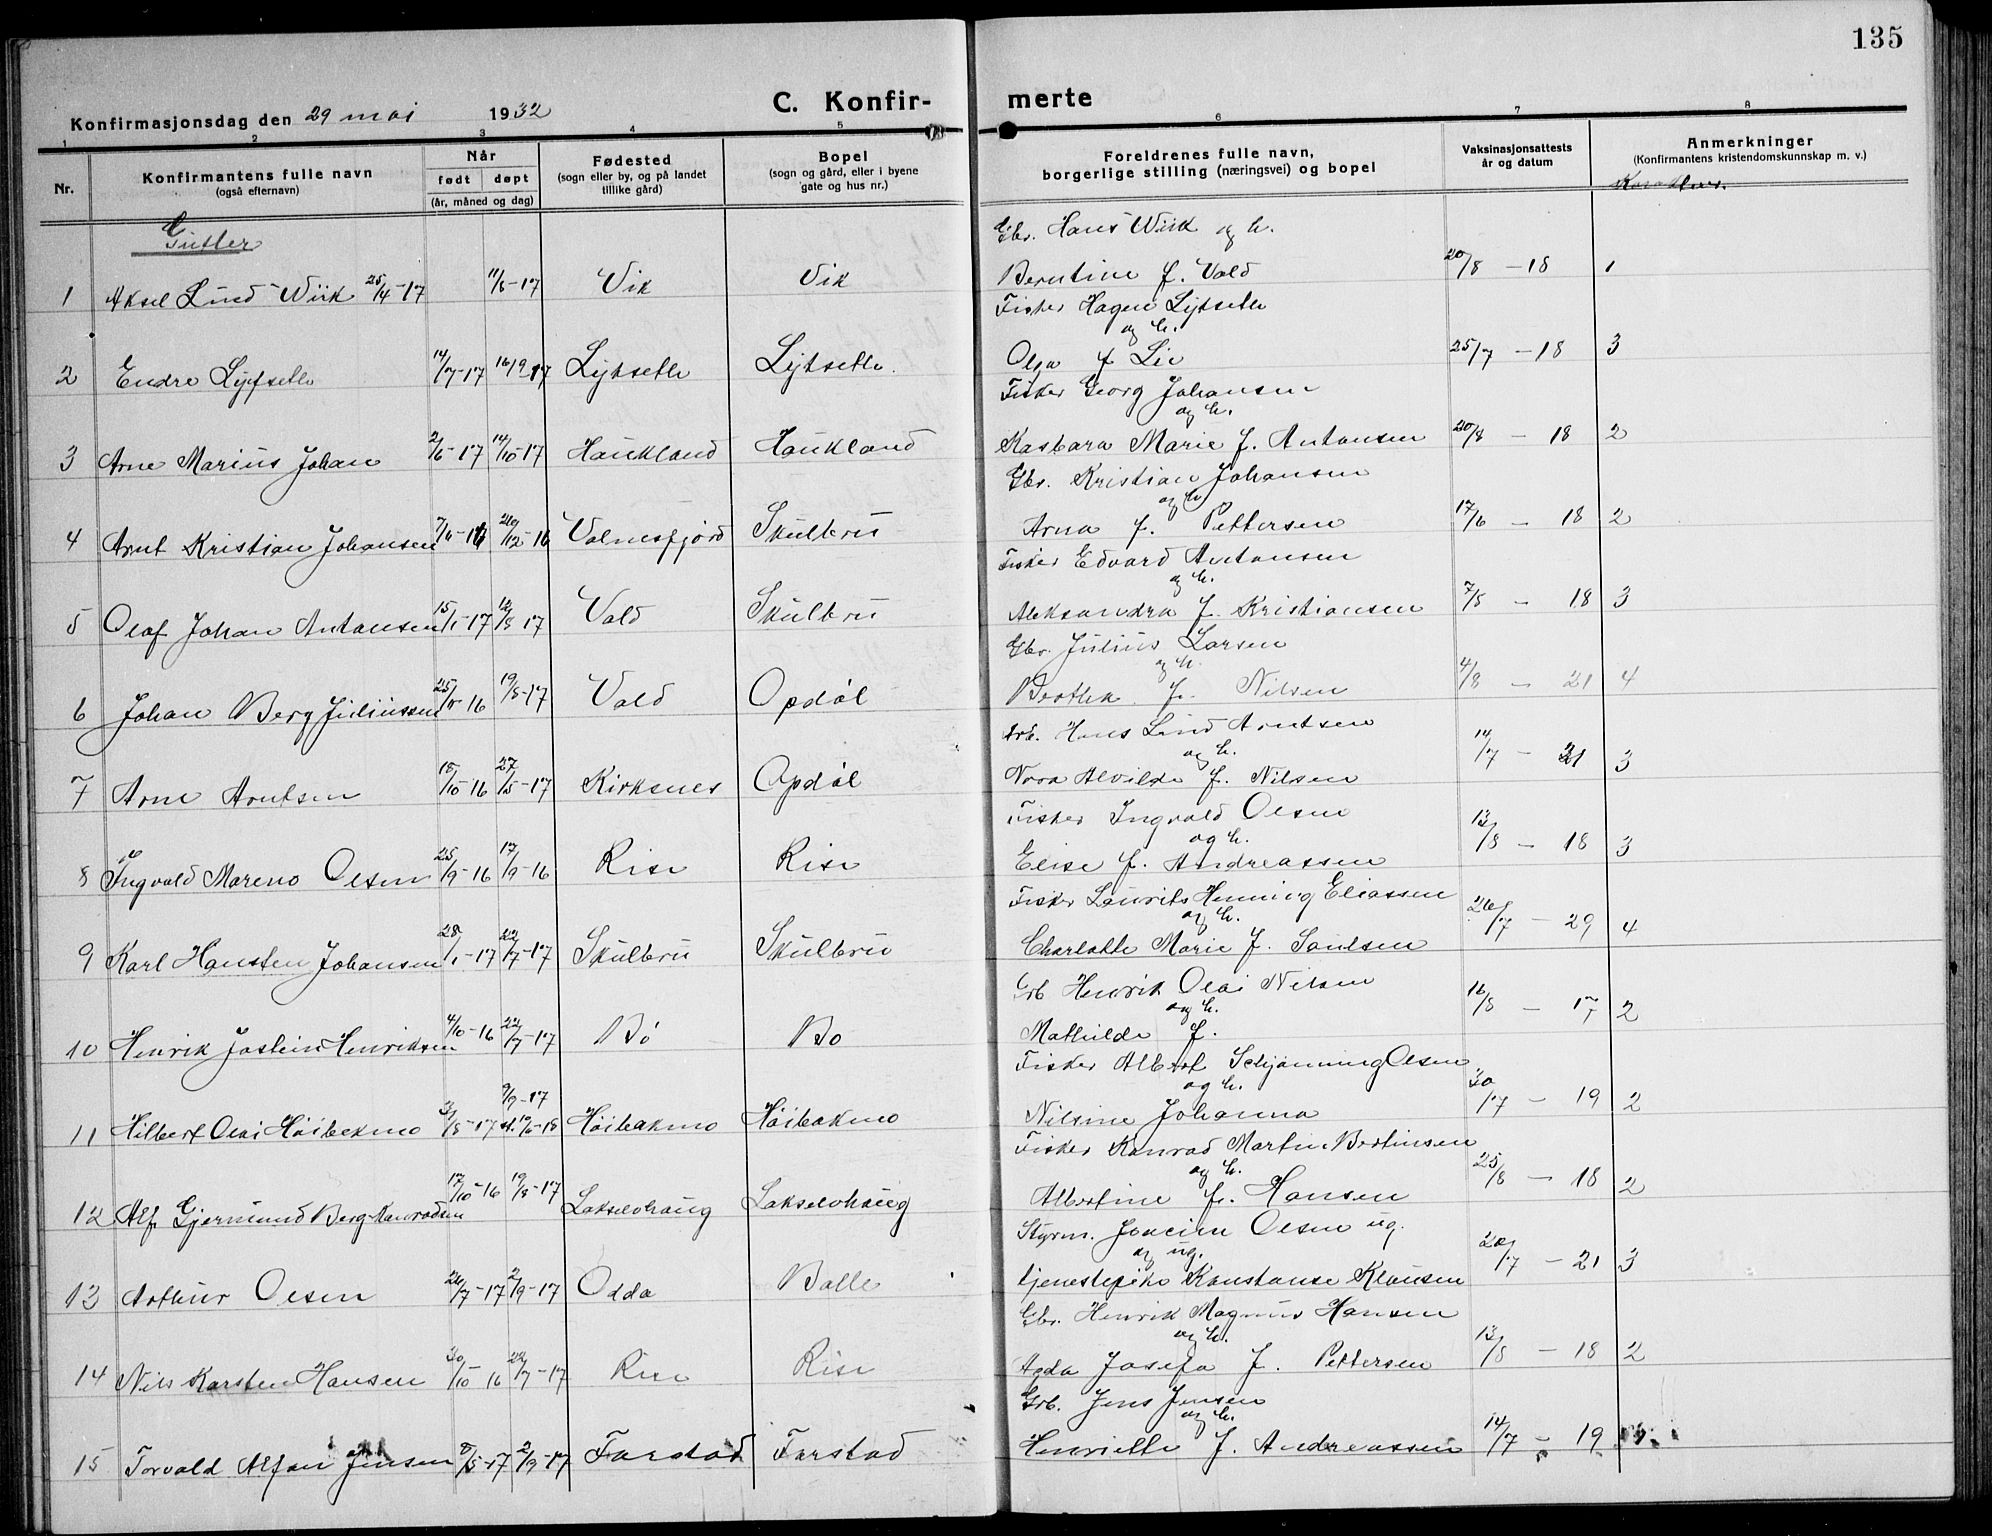 135
C. Konfirmerte
Konfirmasjonsdag den 29 mai 1932
1 2 3 4 5 6 7 8
Nr.
Konfirmantens fulle navn
(også efternavn)
Når
født døpt
(år, måned og dag)
Fødested
(sogn eller by, og på landet
tillike gård)
Bopel
(sogn og gård, eller i byene
gate og hus nr.)
Foreldrenes fulle navn,
borgerlige stilling (næringsvei) og bopel
Vaksinasjonsattests
år og datum
Anmerkninger
(Konfirmantens kristendomskunnskap m. v.)
Gutter
Gbr. Hans Wiik og h.
1 Aksel Lind Wiik 25/4-17 11/8-17 Vik Vik Berntine f. Vold 20/8 - 18 1
Fisker Hagen Lytseth
og h.
2 Endre Lytseth 14/7-17 16/9-17 Lytseth Lytseth. Olga f Lie 25/7 - 18 3
Fisker Georg Johansen
og h.
3 Arne Marius Johan 2/6-17 14/10-17 Haukland Haukland Kasbara Marie f. Antonsen 20/8 - 18 2
Gbr. Kristian Johansen
og h
4 Arnt Kristian Johansen 26/12-16 Valnesfjord Skulbru Arna f. Pettersen 17/6 - 18 2
Fisker Edvard Antonsen
og h.
5 Olaf Johan Antonsen 15/1-17 12/8-17 Vold Skulbru Aleksandra f. Kristiansen 7/8 - 18 3
Gbr. Julius Larsen
og h.
6 Johan Berg Juliussen 19/8-17 Vold Opdøl f. Nilsen 4/8 - 21 4
Arb. Hans Lind Arntsen
og h.
7 Arne Arntsen 18/10-16 27/5-17 Kirksnes Opdøl Nora Alvilde f. Nilsen 14/7 - 21 3
Fisker Ingvald Olsen
og h.
8 Ingvald Mareno Olsen 25/9-16 17/9-16 Rise Rise Elise f. Andreassen 13/8 - 18 3
Fisker Laurits Henning Eliassen
og h.
9 Karl Hansten Johansen 28/1-17 22/7-17 Skulbru Skulbru Charlotte Marie f. Paulsen 26/7 - 29 4
Arb Henrik Olai Nilsen
og h.
10 Henrik Jostein Henriksen 4/10-16 22/7-17 Bø Bø Mathilde f. 16/8 - 17 2
Fisker Albert Schjønning Olsen
og h.
11 Hilbert Olai Høibakmo 9/9-17 Høibakmo Høibakmo Nilsine Johanna 30/7 - 19 2
Fisker Konrad Martin Bertinsen
og h.
12 Alf Gjermund Berg Konradsen 17/10-16 19/8-17 Lakselvhaug Lakselvhaug Albertine f. Hansen 25/8 - 18 2
Styrm. Joacim Olsen ug.
og ug.
13 Arthur Olsen 26/7-17 2/9-17 Odda Bolle tjenestepike Konstanse Klausen 20/7 - 21 3
Gbr. Henrik Magnus Hansen
og h.
14 Nils Karsten Hansen 30/10-16 22/7-17 Rise Rise Agda Josefa f. Pettersen 13/8 - 18 2
Arb. Jens Jensen
og h.
15 Torvald Alfon Jensen 2/9-17 Farstad Farstad Henriette f. Andreassen 14/7 - 19